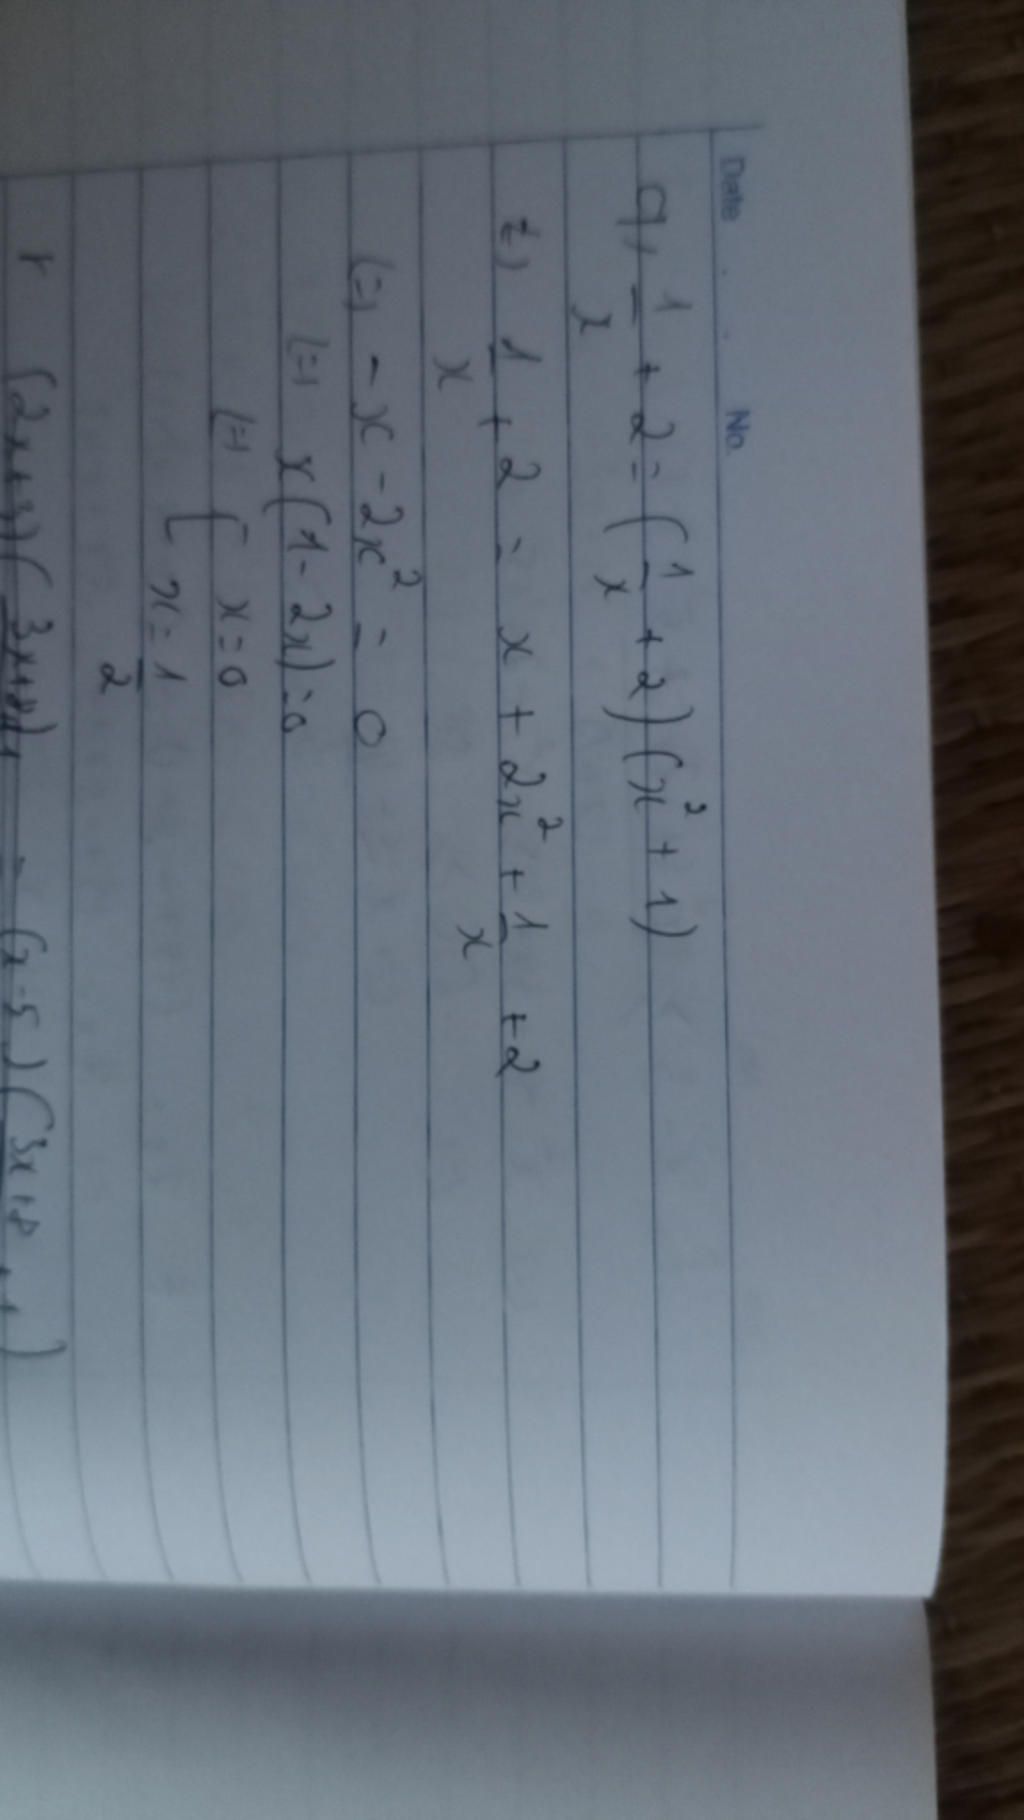 Date . . No.
a, 1/x + 2 = (1/x + 2)(x² + 1)
1/x + 2 = x + 2x² + 1/x + 2
(=) - x - 2x² = 0
(=) x(1 - 2x) = 0
(=) [ x = 0
[ x = 1/2
(2x+3)(3x+8 = (x-5)(3x+8 + 1)